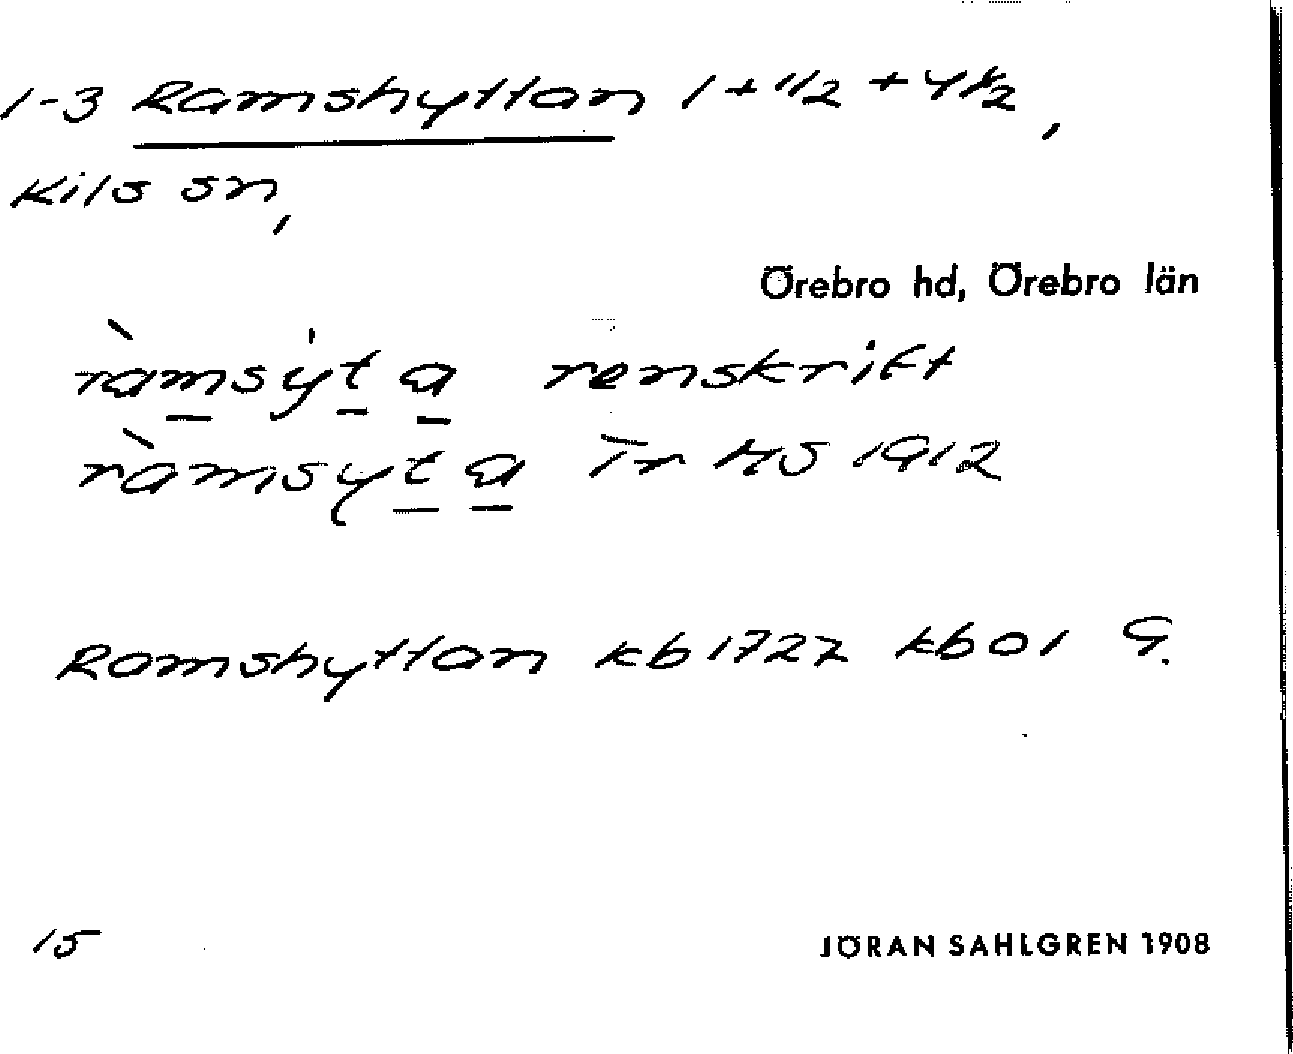 1-3 Ramshyttan 1 + 1/2 + 4 1/2,
Kils sn,
Örebro hd, Örebro län
ràmsyt a renskrift
ràmsyt a Tr HS 1912
Ramshyttan kb 1727 kb 01 G.
15 JÖRAN SAHLGREN 1908